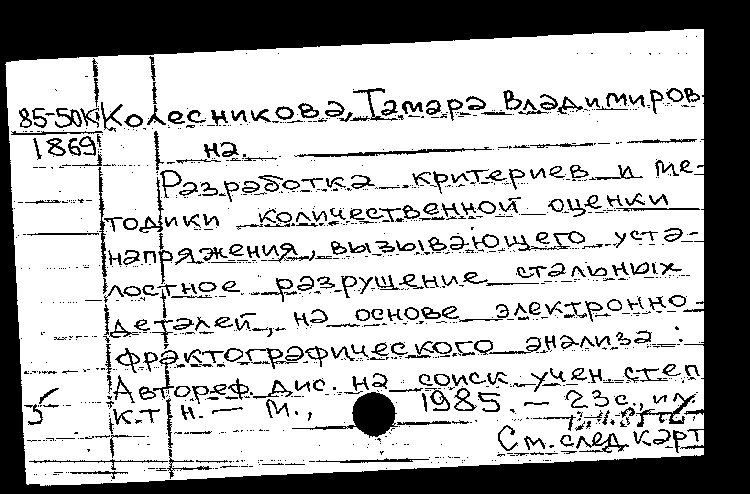 85-50К Колесникова, Тамара Владимиров-
1869 на.
Разработка критериев и ме-
тодики количественной оценки
напряжения, вызывающего уста-
лостное разрушение стальных
деталей, на основе электронно-
фрактографического анализа :
Автореф. дис. на соиск. учен. степ.
к.т.н. — М., 1985. — 23 с., ил.
См. след. карт.